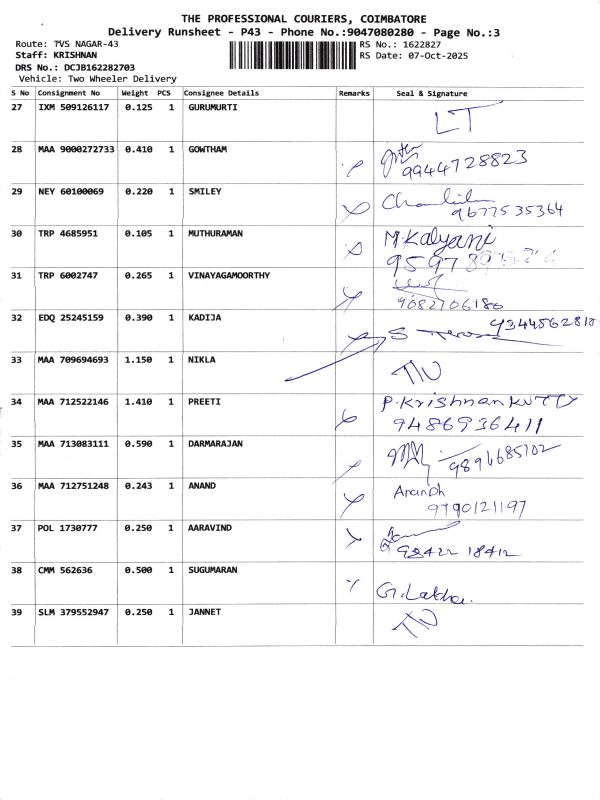 THE PROFESSIONAL COURIERS, COIMBATORE
Delivery Runsheet - P43 - Phone No.:9047080280 - Page No.:3
Route: TVS NAGAR-43
Staff: KRISHNAN
DRS No.: DCJB162282703
Vehicle: Two Wheeler Delivery
RS No.: 1622827
RS Date: 07-Oct-2025
S No Consignment No Weight PCS Consignee Details Remarks Seal & Signature
27 IXM 509126117 0.125 1 GURUMURTI LT
28 MAA 9000272733 0.410 1 GOWTHAM
9944728823
29 NEY 60100069 0.220 1 SMILEY
9677535364
30 TRP 4685951 0.105 1 MUTHURAMAN M.Kalyani
31 TRP 6002747 0.265 1 VINAYAGAMOORTHY
9082706180
32 EDQ 25245159 0.390 1 KADIJA 9344562818
33 MAA 709694693 1.150 1 NIKLA
34 MAA 712522146 1.410 1 PREETI P.Krishnan KUTTY
9486936411
35 MAA 713083111 0.590 1 DARMARAJAN
9894685102
36 MAA 712751248 0.243 1 ANAND Anandh
9790121197
37 POL 1730777 0.250 1 AARAVIND
98422 18412
38 CMM 562636 0.500 1 SUGUMARAN
G.Lakha.
39 SLM 379552947 0.250 1 JANNET